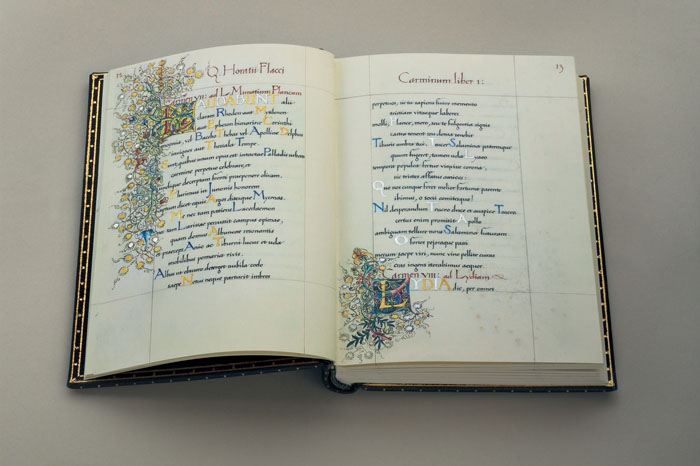 12 Q. Horatii Flacci
Carmen VII: ad L: Munatium Plancum
LAUDABUNT alii
claram Rhodon aut Mytilenen
aut Epheson bimarisve Corinthi
moenia, vel Baccho Thebas vel Apolline Delphos
insignes aut Thessala Tempe.
Sunt quibus unum opus est intactae Palladis urbem
carmine perpetuo celebrare, et
undique decerptam fronti praeponere olivam.
Plurimus in Junonis honorem
aptum dicet equis Argos ditesque Mycenas.
Me nec tam patiens Lacedaemon
nec tam Larissae percussit campus opimae,
quam domus Albuneae resonantis
et praeceps Anio ac Tiburni lucus et uda
mobilibus pomaria rivis.
Albus ut obscuro deterget nubila coelo
saepe Notus neque parturit imbres
Carminum liber 1: 13
perpetuos, sic tu sapiens finire memento
tristitiam vitaeque labores
molli, Plance, mero, seu te fulgentia signis
castra tenent seu densa tenebit
Tiburis umbra tui. Teucer Salamina patremque
quum fugeret, tamen uda Lyaeo
tempora populea fertur vinxisse corona,
sic tristes affatus amicos:
Quo nos cunque feret melior fortuna parente
ibimus, o socii comitesque!
Nil desperandum Teucro duce et auspice Teucro
certus enim promisit Apollo
ambiguam tellure nova Salamina futuram
O fortes pejoraque passi
mecum saepe viri, nunc vino pellite curas
cras ingens iterabimus aequor.
Carmen VIII: ad Lydiam
LYDIA dic, per omnes